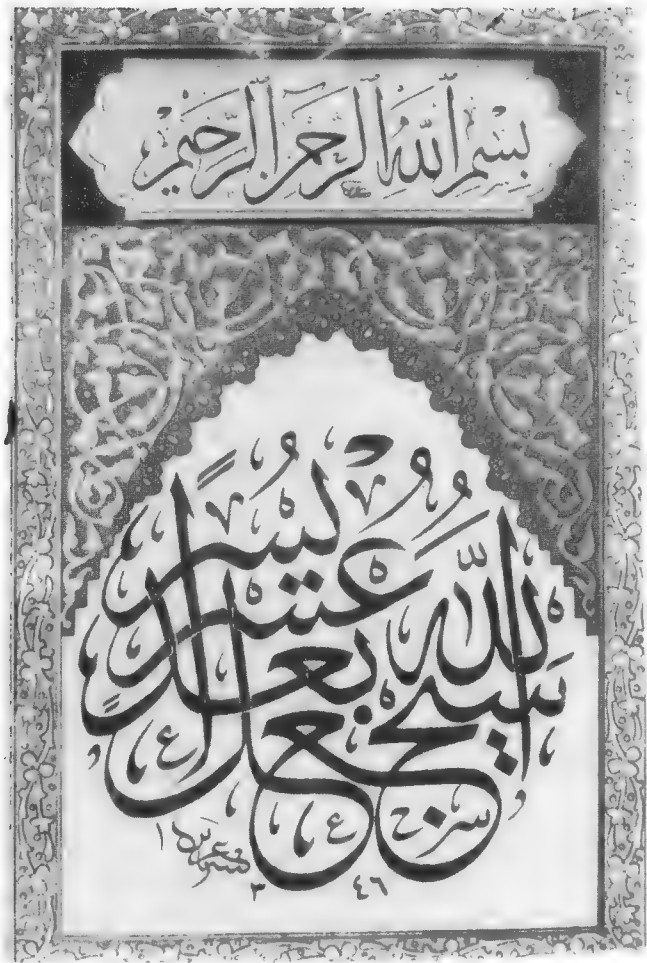 بِسْمِ اللّٰهِ الرَّحْمٰنِ الرَّحِيْمِ
سَيَجْعَلُ اللّٰهُ بَعْدَ عُسْرٍ يُسْرًا
١٣٤٦